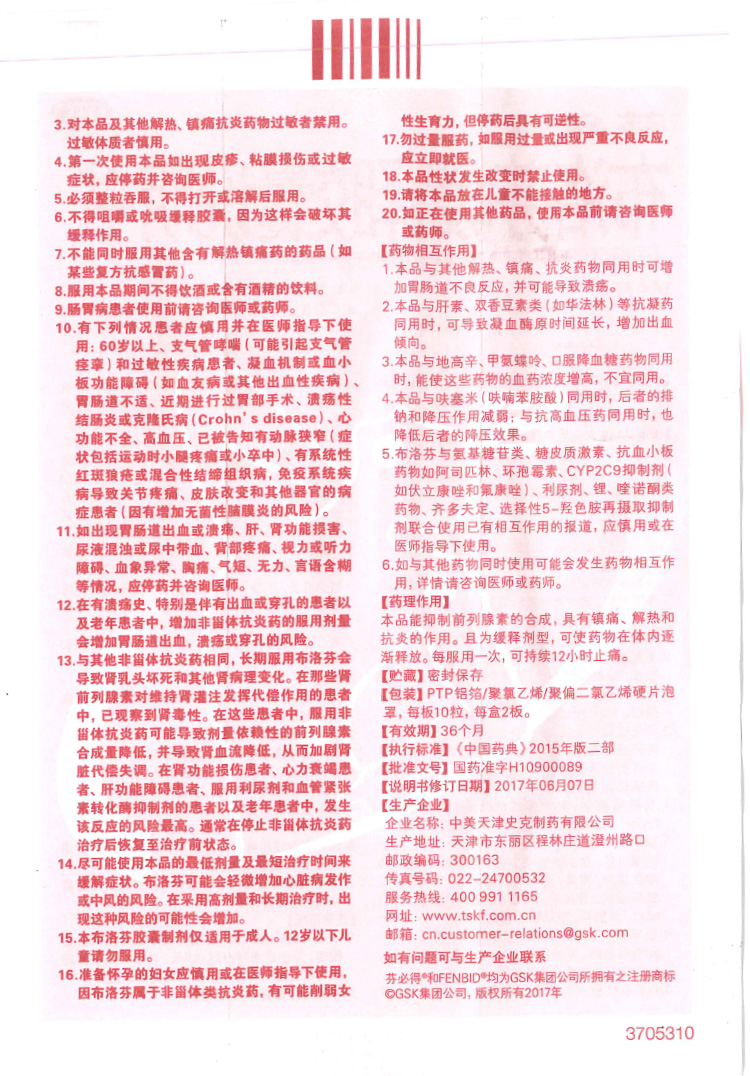 3.对本品及其他解热、镇痛抗炎药物过敏者禁用。
过敏体质者慎用。
4.第一次使用本品如出现皮疹、粘膜损伤或过敏
症状，应停药并咨询医师。
5.必须整粒吞服，不得打开或溶解后服用。
6.不得咀嚼或吮吸缓释胶囊，因为这样会破坏其
缓释作用。
7.不能同时服用其他含有解热镇痛药的药品（如
某些复方抗感冒药）。
8.服用本品期间不得饮酒或含有酒精的饮料。
9.肠胃病患者使用前请咨询医师或药师。
10.有下列情况患者应慎用并在医师指导下使
用：60岁以上、支气管哮喘（可能引起支气管
痉挛）和过敏性疾病患者、凝血机制或血小
板功能障碍（如血友病或其他出血性疾病）、
胃肠道不适、近期进行过胃部手术、溃疡性
结肠炎或克隆氏病(Crohn's disease)、心
功能不全、高血压、已被告知有动脉狭窄（症
状包括运动时小腿疼痛或小卒中）、有系统性
红斑狼疮或混合性结缔组织病，免疫系统疾
病导致关节疼痛、皮肤改变和其他器官的病
症患者（因有增加无菌性脑膜炎的风险）。
11.如出现胃肠道出血或溃疡、肝、肾功能损害、
尿液混浊或尿中带血、背部疼痛、视力或听力
障碍、血象异常、胸痛、气短、无力、言语含糊
等情况，应停药并咨询医师。
12.在有溃疡史、特别是伴有出血或穿孔的患者以
及老年患者中，增加非甾体抗炎药的服用剂量
会增加胃肠道出血，溃疡或穿孔的风险。
13.与其他非甾体抗炎药相同，长期服用布洛芬会
导致肾乳头坏死和其他肾病理变化。在那些肾
前列腺素对维持肾灌注发挥代偿作用的患者
中，已观察到肾毒性。在这些患者中，服用非
甾体抗炎药可能导致剂量依赖性的前列腺素
合成量降低，并导致肾血流降低，从而加剧肾
脏代偿失调。在肾功能损伤患者、心力衰竭患
者、肝功能障碍患者、服用利尿剂和血管紧张
素转化酶抑制剂的患者以及老年患者中，发生
该反应的风险最高。通常在停止非甾体抗炎药
治疗后恢复至治疗前状态。
14.尽可能使用本品的最低剂量及最短治疗时间来
缓解症状。布洛芬可能会轻微增加心脏病发作
或中风的风险。在采用高剂量和长期治疗时，出
现这种风险的可能性会增加。
15.本布洛芬胶囊制剂仅适用于成人。12岁以下儿
童请勿服用。
16.准备怀孕的妇女应慎用或在医师指导下使用，
因布洛芬属于非甾体类抗炎药，有可能削弱女
性生育力，但停药后具有可逆性。
17.勿过量服药，如服用过量或出现严重不良反应，
应立即就医。
18.本品性状发生改变时禁止使用。
19.请将本品放在儿童不能接触的地方。
20.如正在使用其他药品，使用本品前请咨询医师
或药师。
【药物相互作用】
1.本品与其他解热、镇痛、抗炎药物同用时可增
加胃肠道不良反应，并可能导致溃疡。
2.本品与肝素、双香豆素类（如华法林）等抗凝药
同用时，可导致凝血酶原时间延长，增加出血
倾向。
3.本品与地高辛、甲氨蝶呤、口服降血糖药物同用
时，能使这些药物的血药浓度增高，不宜同用。
4.本品与呋塞米（呋喃苯胺酸）同用时，后者的排
钠和降压作用减弱；与抗高血压药同用时，也
降低后者的降压效果。
5.布洛芬与氨基糖苷类、糖皮质激素、抗血小板
药物如阿司匹林、环孢霉素、CYP2C9抑制剂（
如伏立康唑和氟康唑）、利尿剂、锂、喹诺酮类
药物、齐多夫定、选择性5-羟色胺再摄取抑制
剂联合使用已有相互作用的报道，应慎用或在
医师指导下使用。
6.如与其他药物同时使用可能会发生药物相互作
用，详情请咨询医师或药师。
【药理作用】
本品能抑制前列腺素的合成，具有镇痛、解热和
抗炎的作用。且为缓释剂型，可使药物在体内逐
渐释放。每服用一次，可持续12小时止痛。
【贮藏】密封保存
【包装】PTP铝箔/聚氯乙烯/聚偏二氯乙烯硬片泡
罩，每板10粒，每盒2板。
【有效期】36个月
【执行标准】《中国药典》2015年版二部
【批准文号】国药准字H10900089
【说明书修订日期】2017年06月07日
【生产企业】
企业名称：中美天津史克制药有限公司
生产地址：天津市东丽区程林庄道澄州路口
邮政编码：300163
传真号码：022-24700532
服务热线：400 991 1165
网址：www.tskf.com.cn
邮箱：cn.customer-relations@gsk.com
如有问题可与生产企业联系
芬必得®和FENBID®均为GSK集团公司所拥有之注册商标
©GSK集团公司，版权所有2017年
3705310